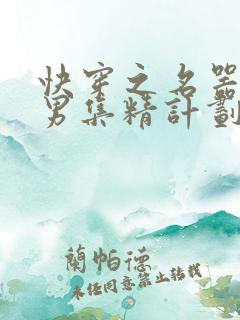 快穿之名器
男集精計劃
蘭帕德
未經同意禁止轉載